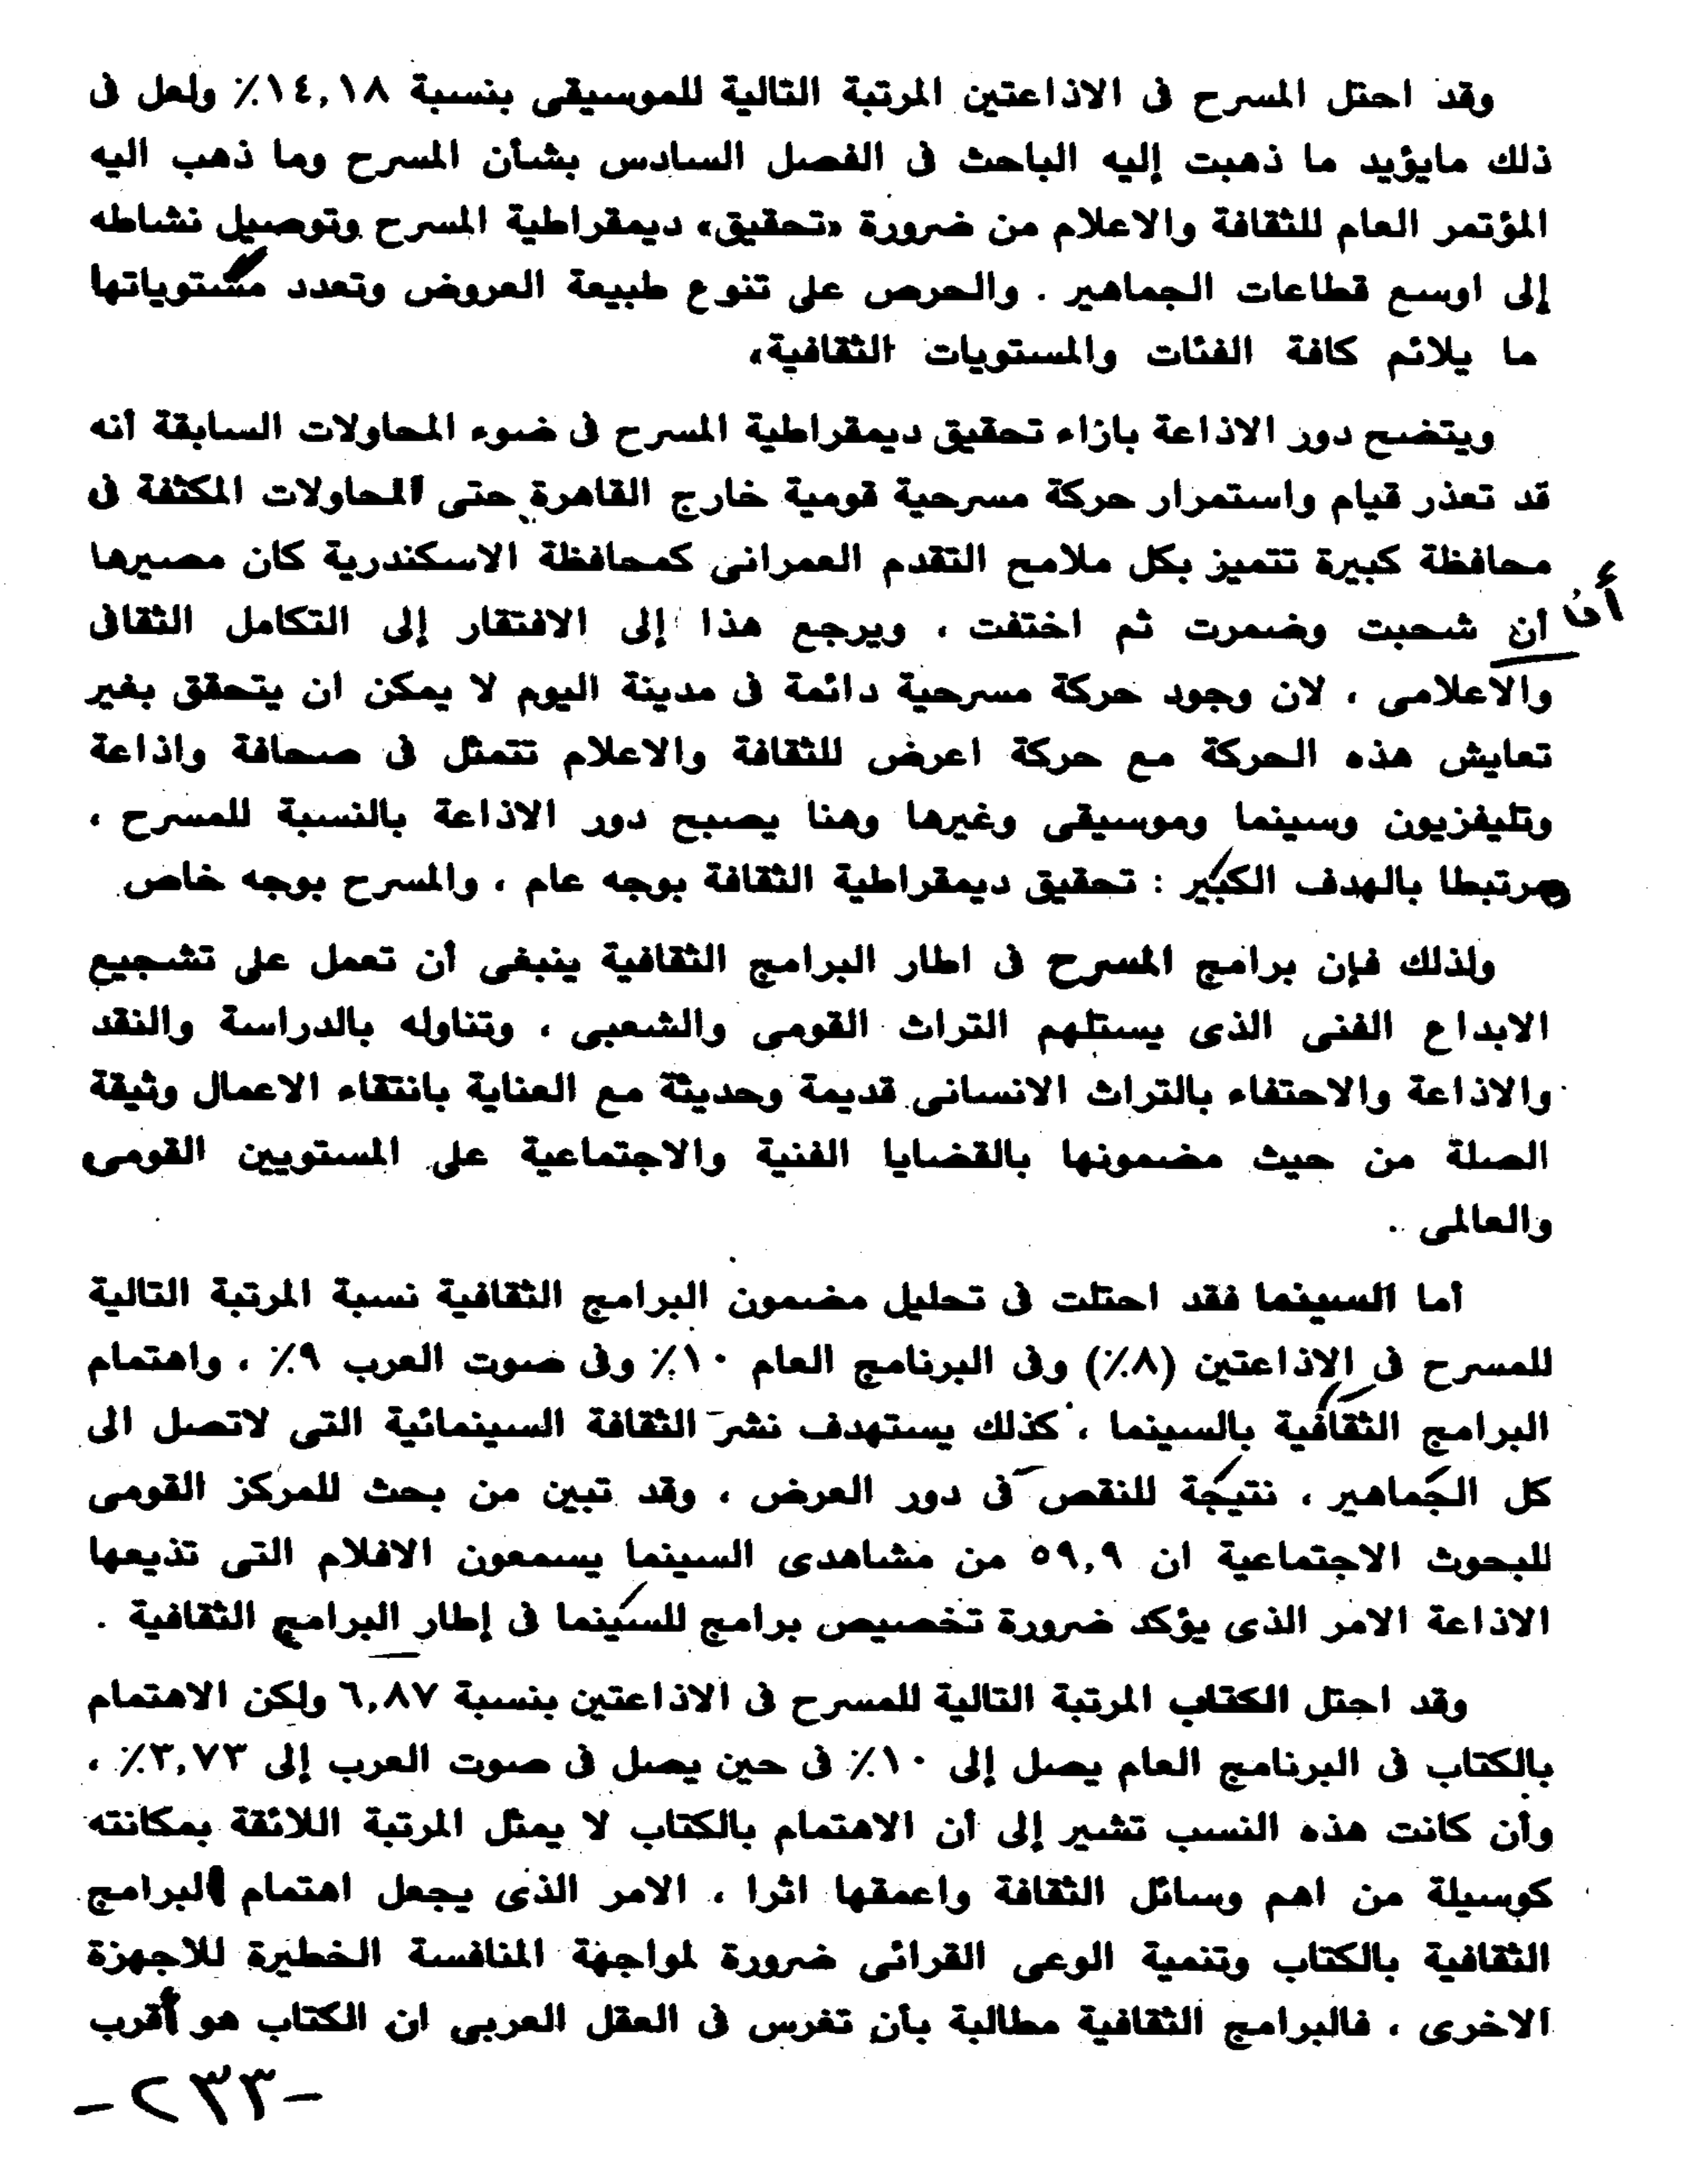 وقد احتل المسرح فى الاذاعتين المرتبة التالية للموسيقى بنسبة ١٤,١٨٪ ولعل فى
ذلك مايؤيد ما ذهبت إليه الباحث فى الفصل السادس بشأن المسرح وما ذهب اليه
المؤتمر العام للثقافة والاعلام من ضرورة «تحقيق» ديمقراطية المسرح وتوصيل نشاطه
إلى اوسع قطاعات الجماهير . والحرص على تنوع طبيعة العروض وتعدد مستوياتها
ما يلائم كافة الفئات والمستويات الثقافية،
ويتضح دور الاذاعة بازاء تحقيق ديمقراطية المسرح فى ضوء المحاولات السابقة أنه
قد تعذر قيام واستمرار حركة مسرحية قومية خارج القاهرة حتى المحاولات المكثفة فى
محافظة كبيرة تتميز بكل ملامح التقدم العمرانى كمحافظة الاسكندرية كان مصيرها
أن شحبت وضمرت ثم اختفت ، ويرجع هذا إلى الافتقار إلى التكامل الثقافى
والاعلامى ، لان وجود حركة مسرحية دائمة فى مدينة اليوم لا يمكن ان يتحقق بغير
تعايش هذه الحركة مع حركة اعرض للثقافة والاعلام تتمثل فى صحافة واذاعة
وتليفزيون وسينما وموسيقى وغيرها وهنا يصبح دور الاذاعة بالنسبة للمسرح ،
مرتبطا بالهدف الكبير : تحقيق ديمقراطية الثقافة بوجه عام ، والمسرح بوجه خاص
ولذلك فإن برامج المسرح فى اطار البرامج الثقافية ينبغى أن تعمل على تشجيع
الابداع الفنى الذى يستلهم التراث القومى والشعبى ، وتناوله بالدراسة والنقد
والاذاعة والاحتفاء بالتراث الانسانى قديمة وحديثة مع العناية بانتقاء الاعمال وثيقة
الصلة من حيث مضمونها بالقضايا الفنية والاجتماعية على المستويين القومى
والعالمى .
أما السينما فقد احتلت فى تحليل مضمون البرامج الثقافية نسبة المرتبة التالية
للمسرح فى الاذاعتين (٨٪) وفى البرنامج العام ١٠٪ وفى صوت العرب ٩٪ ، واهتمام
البرامج الثقافية بالسينما ، كذلك يستهدف نشر الثقافة السينمائية التى لاتصل الى
كل الجماهير ، نتيجة للنقص فى دور العرض ، وقد تبين من بحث للمركز القومى
للبحوث الاجتماعية ان ٥٩,٩ من مشاهدى السينما يسمعون الافلام التى تذيعها
الاذاعة الامر الذى يؤكد ضرورة تخصيص برامج للسينما فى إطار البرامج الثقافية .
وقد احتل الكتاب المرتبة التالية للمسرح فى الاذاعتين بنسبة ٦,٨٧ ولكن الاهتمام
بالكتاب فى البرنامج العام يصل إلى ١٠٪ فى حين يصل فى صوت العرب إلى ٣,٧٣٪ ،
وأن كانت هذه النسب تشير إلى أن الاهتمام بالكتاب لا يمثل المرتبة اللائقة بمكانته
كوسيلة من اهم وسائل الثقافة واعمقها اثرا ، الامر الذى يجعل اهتمام البرامج
الثقافية بالكتاب وتنمية الوعى القرائى ضرورة لمواجهة المنافسة الخطيرة للاجهزة
الاخرى ، فالبرامج الثقافية مطالبة بأن تغرس فى العقل العربى ان الكتاب هو أقرب
-٢٣٣-